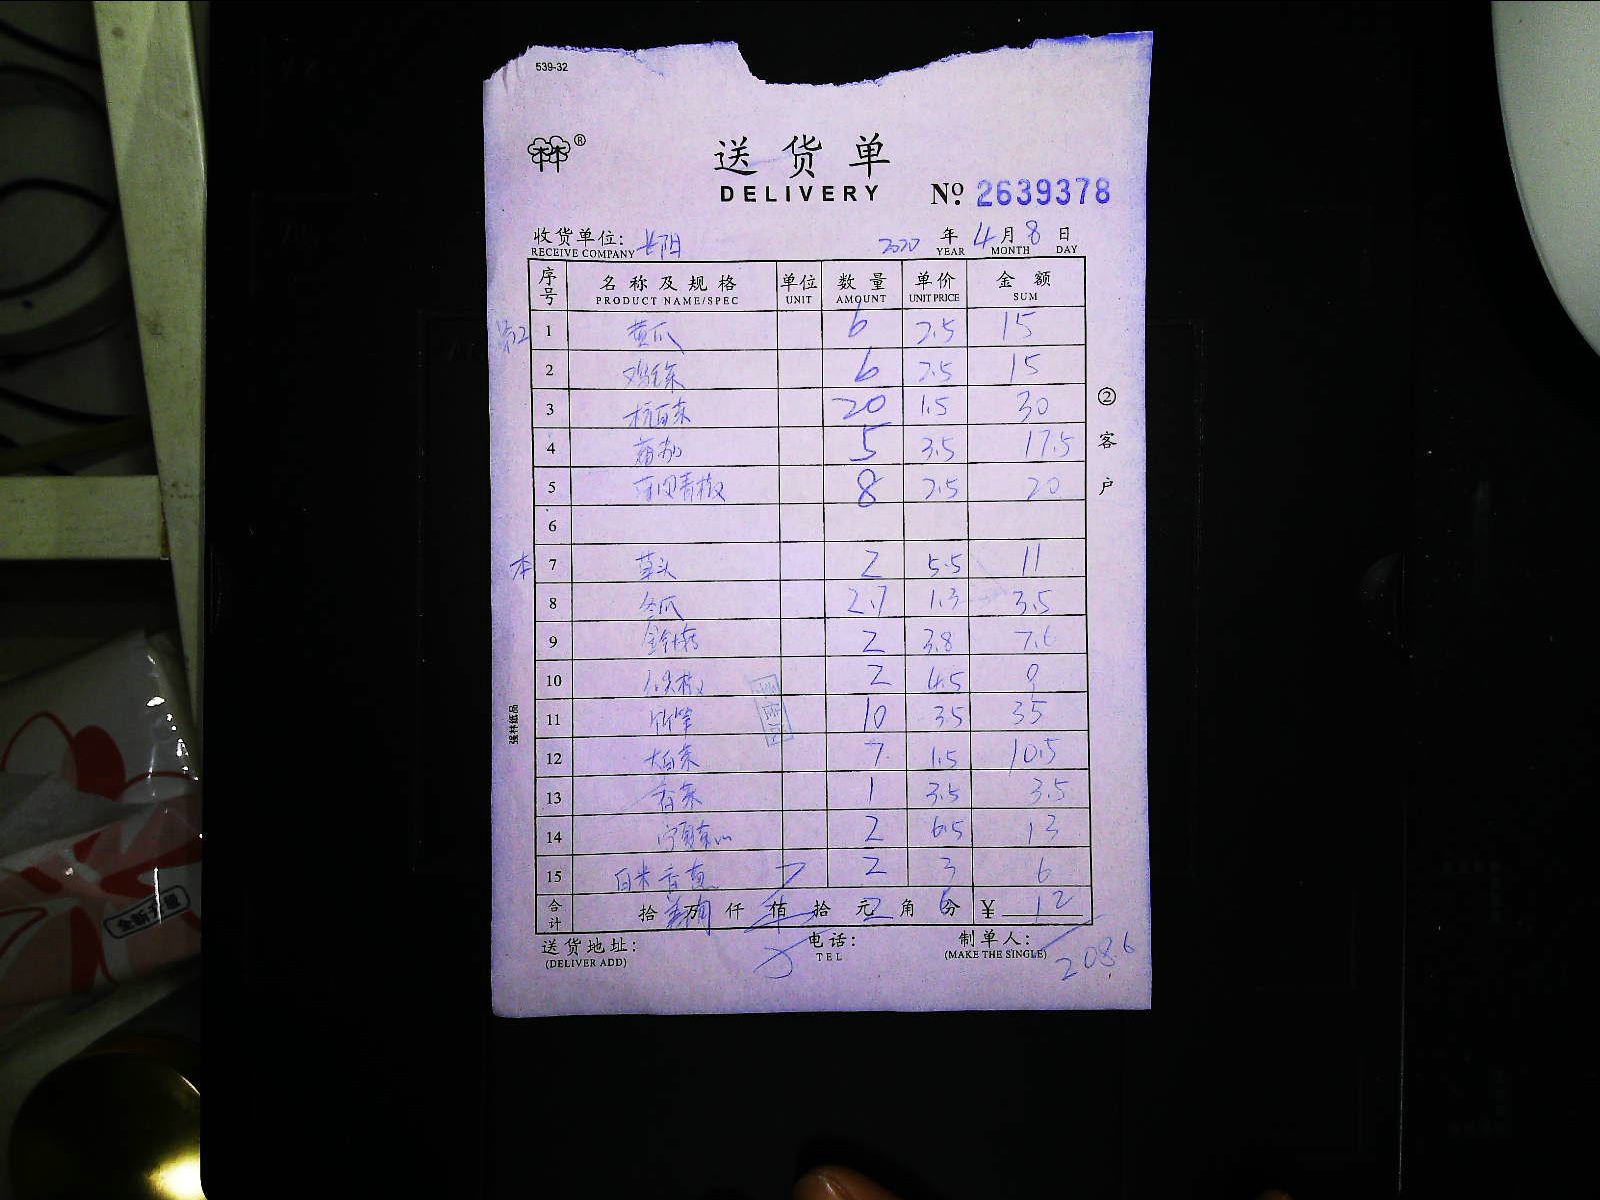 539-32
林®
送货单
DELIVERY № 2639378
收货单位: 长阳 2020 年 4 月 8 日
RECEIVE COMPANY YEAR MONTH DAY
序号 名称及规格 单位 数量 单价 金额
PRODUCT NAME/SPEC UNIT AMOUNT UNIT PRICE SUM
1 黄瓜 6 2.5 15
2 鸡毛菜 6 2.5 15
3 杭白菜 20 1.5 30
4 5 3.5 17.5
5 薄皮青椒 8 2.5 20
6
本 7 草头 2 5.5 11
8 冬瓜 2.7 1.3 3.5
9 金针菇 2 3.8 7.6
10 2 4.5 9
11 竹笋 10 3.5 35
12 大白菜 7 1.5 10.5
13 香菜 1 3.5 3.5
14 宁夏菜心 2 6.5 13
15 白米苋 2 3 6
合计 拾 万 仟 佰 拾 元 角 分 ¥ 12
送货地址: 电话: 制单人:
(DELIVER ADD) TEL (MAKE THE SINGLE) 208.6
②客户
强林纸品
全新升级